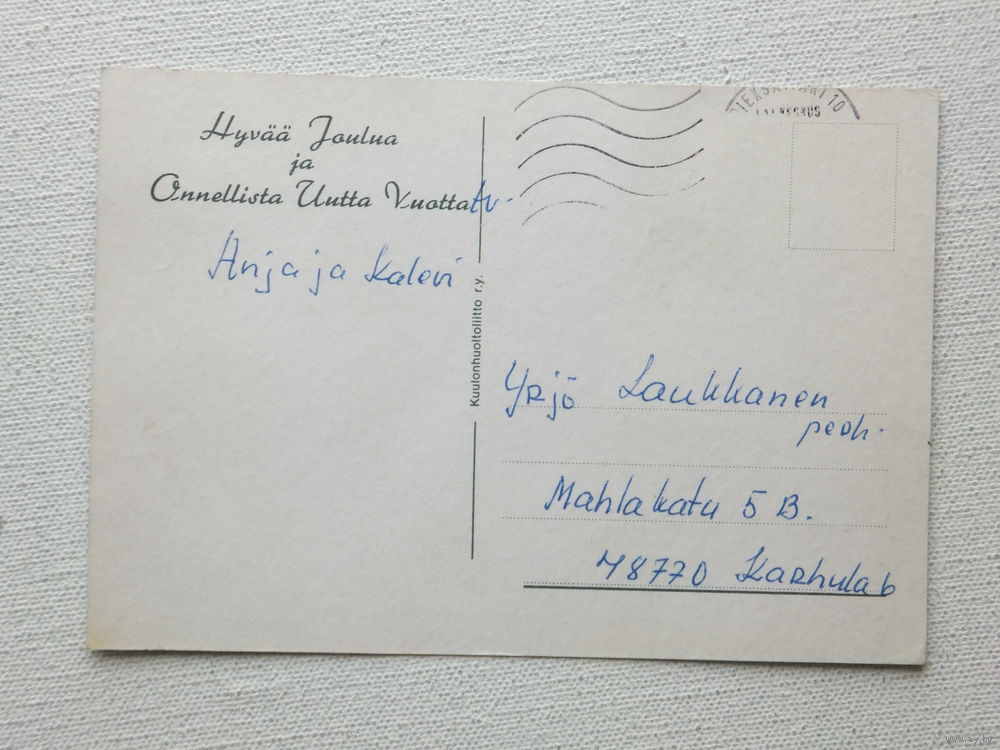 Hyvää Joulua
ja
Onnellista Uutta Vuotta
tv.
Anja ja Kalevi
Kuulonhuoltoliitto r.y.
10
Yrjö Laukkanen
perh.
Mahlakatu 5 B.
48770 Karhula 6
www.ay.by